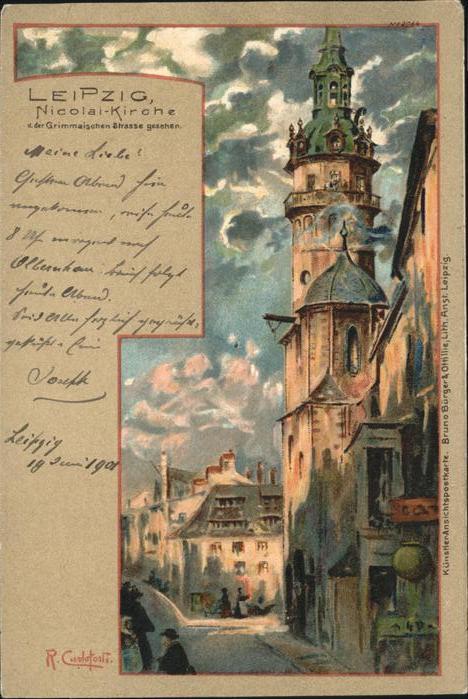 LEIPZIG,
Nicolai-Kirche
v. der Grimmaischen Strasse gesehen.
Meine Liebe!
Gestern Abend hier
angekommen, reise heute
8 Uhr morgens nach
Olbernhau. Brief folgt
heute Abend.
Seid Alle herzlich gegrüßt,
geküßt
Joseph
Leipzig
19 Juni 1901
R. Carloforti.
Künstler-Ansichtspostkarte. Bruno Bürger & Ottillie, Lith. Anst. Leipzig.